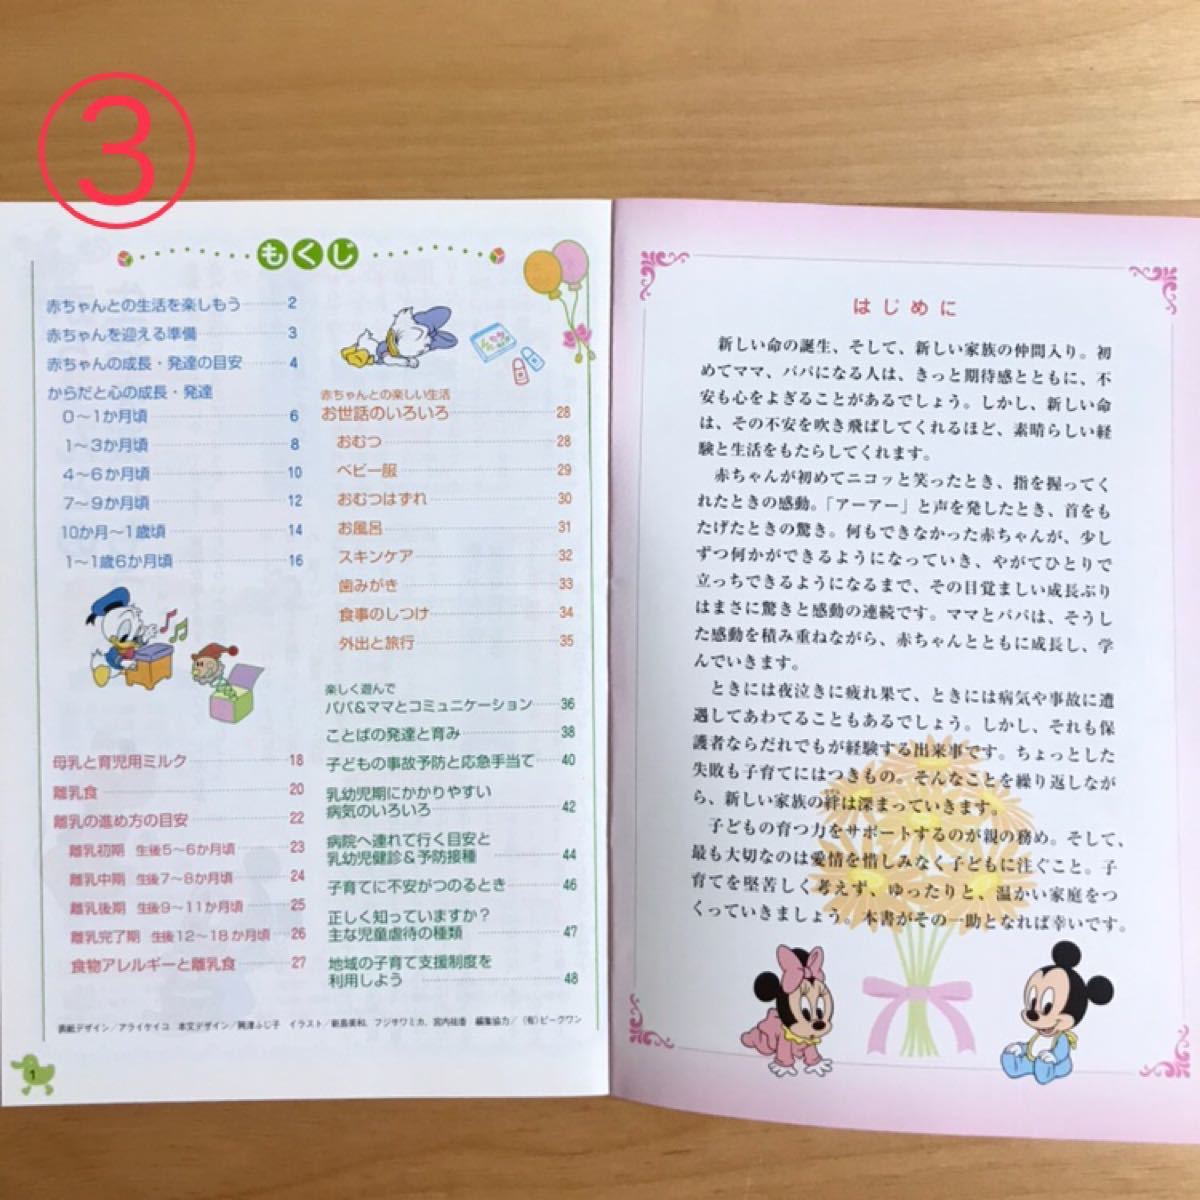 ③
もくじ
赤ちゃんとの生活を楽しもう 2
赤ちゃんを迎える準備 3
赤ちゃんの成長・発達の目安 4
からだと心の成長・発達
0〜1か月頃 6
1〜3か月頃 8
4〜6か月頃 10
7〜9か月頃 12
10か月〜1歳頃 14
1〜1歳6か月頃 16
母乳と育児用ミルク 18
離乳食 20
離乳の進め方の目安 22
離乳初期 生後5〜6か月頃 23
離乳中期 生後7〜8か月頃 24
離乳後期 生後9〜11か月頃 25
離乳完了期 生後12〜18か月頃 26
食物アレルギーと離乳食 27
赤ちゃんとの楽しい生活
お世話のいろいろ 28
おむつ 28
ベビー服 29
おむつはずれ 30
お風呂 31
スキンケア 32
歯みがき 33
食事のしつけ 34
外出と旅行 35
楽しく遊んで
パパ&ママとコミュニケーション 36
ことばの発達と育み 38
子どもの事故予防と応急手当て 40
乳幼児期にかかりやすい
病気のいろいろ 42
病院へ連れて行く目安と
乳幼児健診&予防接種 44
子育てに不安がつのるとき 46
正しく知っていますか?
主な児童虐待の種類 47
地域の子育て支援制度を
利用しよう 48
表紙デザイン/アライケイコ 本文デザイン/興津ふじ子 イラスト/新島美和、フジサワミカ、宮内祐香 編集協力/(有)ピークワン
1
はじめに
新しい命の誕生、そして、新しい家族の仲間入り。初
めてママ、パパになる人は、きっと期待感とともに、不
安も心をよぎることがあるでしょう。しかし、新しい命
は、その不安を吹き飛ばしてくれるほど、素晴らしい経
験と生活をもたらしてくれます。
赤ちゃんが初めてニコッと笑ったとき、指を握ってく
れたときの感動。「アーアー」と声を発したとき、首をも
たげたときの驚き。何もできなかった赤ちゃんが、少し
ずつ何かができるようになっていき、やがてひとりで
立っちできるようになるまで、その目覚ましい成長ぶり
はまさに驚きと感動の連続です。ママとパパは、そうし
た感動を積み重ねながら、赤ちゃんとともに成長し、学
んでいきます。
ときには夜泣きに疲れ果て、ときには病気や事故に遭
遇してあわてることもあるでしょう。しかし、それも保
護者ならだれでもが経験する出来事です。ちょっとした
失敗も子育てにはつきもの。そんなことを繰り返しなが
ら、新しい家族の絆は深まっていきます。
子どもの育つ力をサポートするのが親の務め。そして、
最も大切なのは愛情を惜しみなく子どもに注ぐこと。子
育てを堅苦しく考えず、ゆったりと、温かい家庭をつ
くっていきましょう。本書がその一助となれば幸いです。